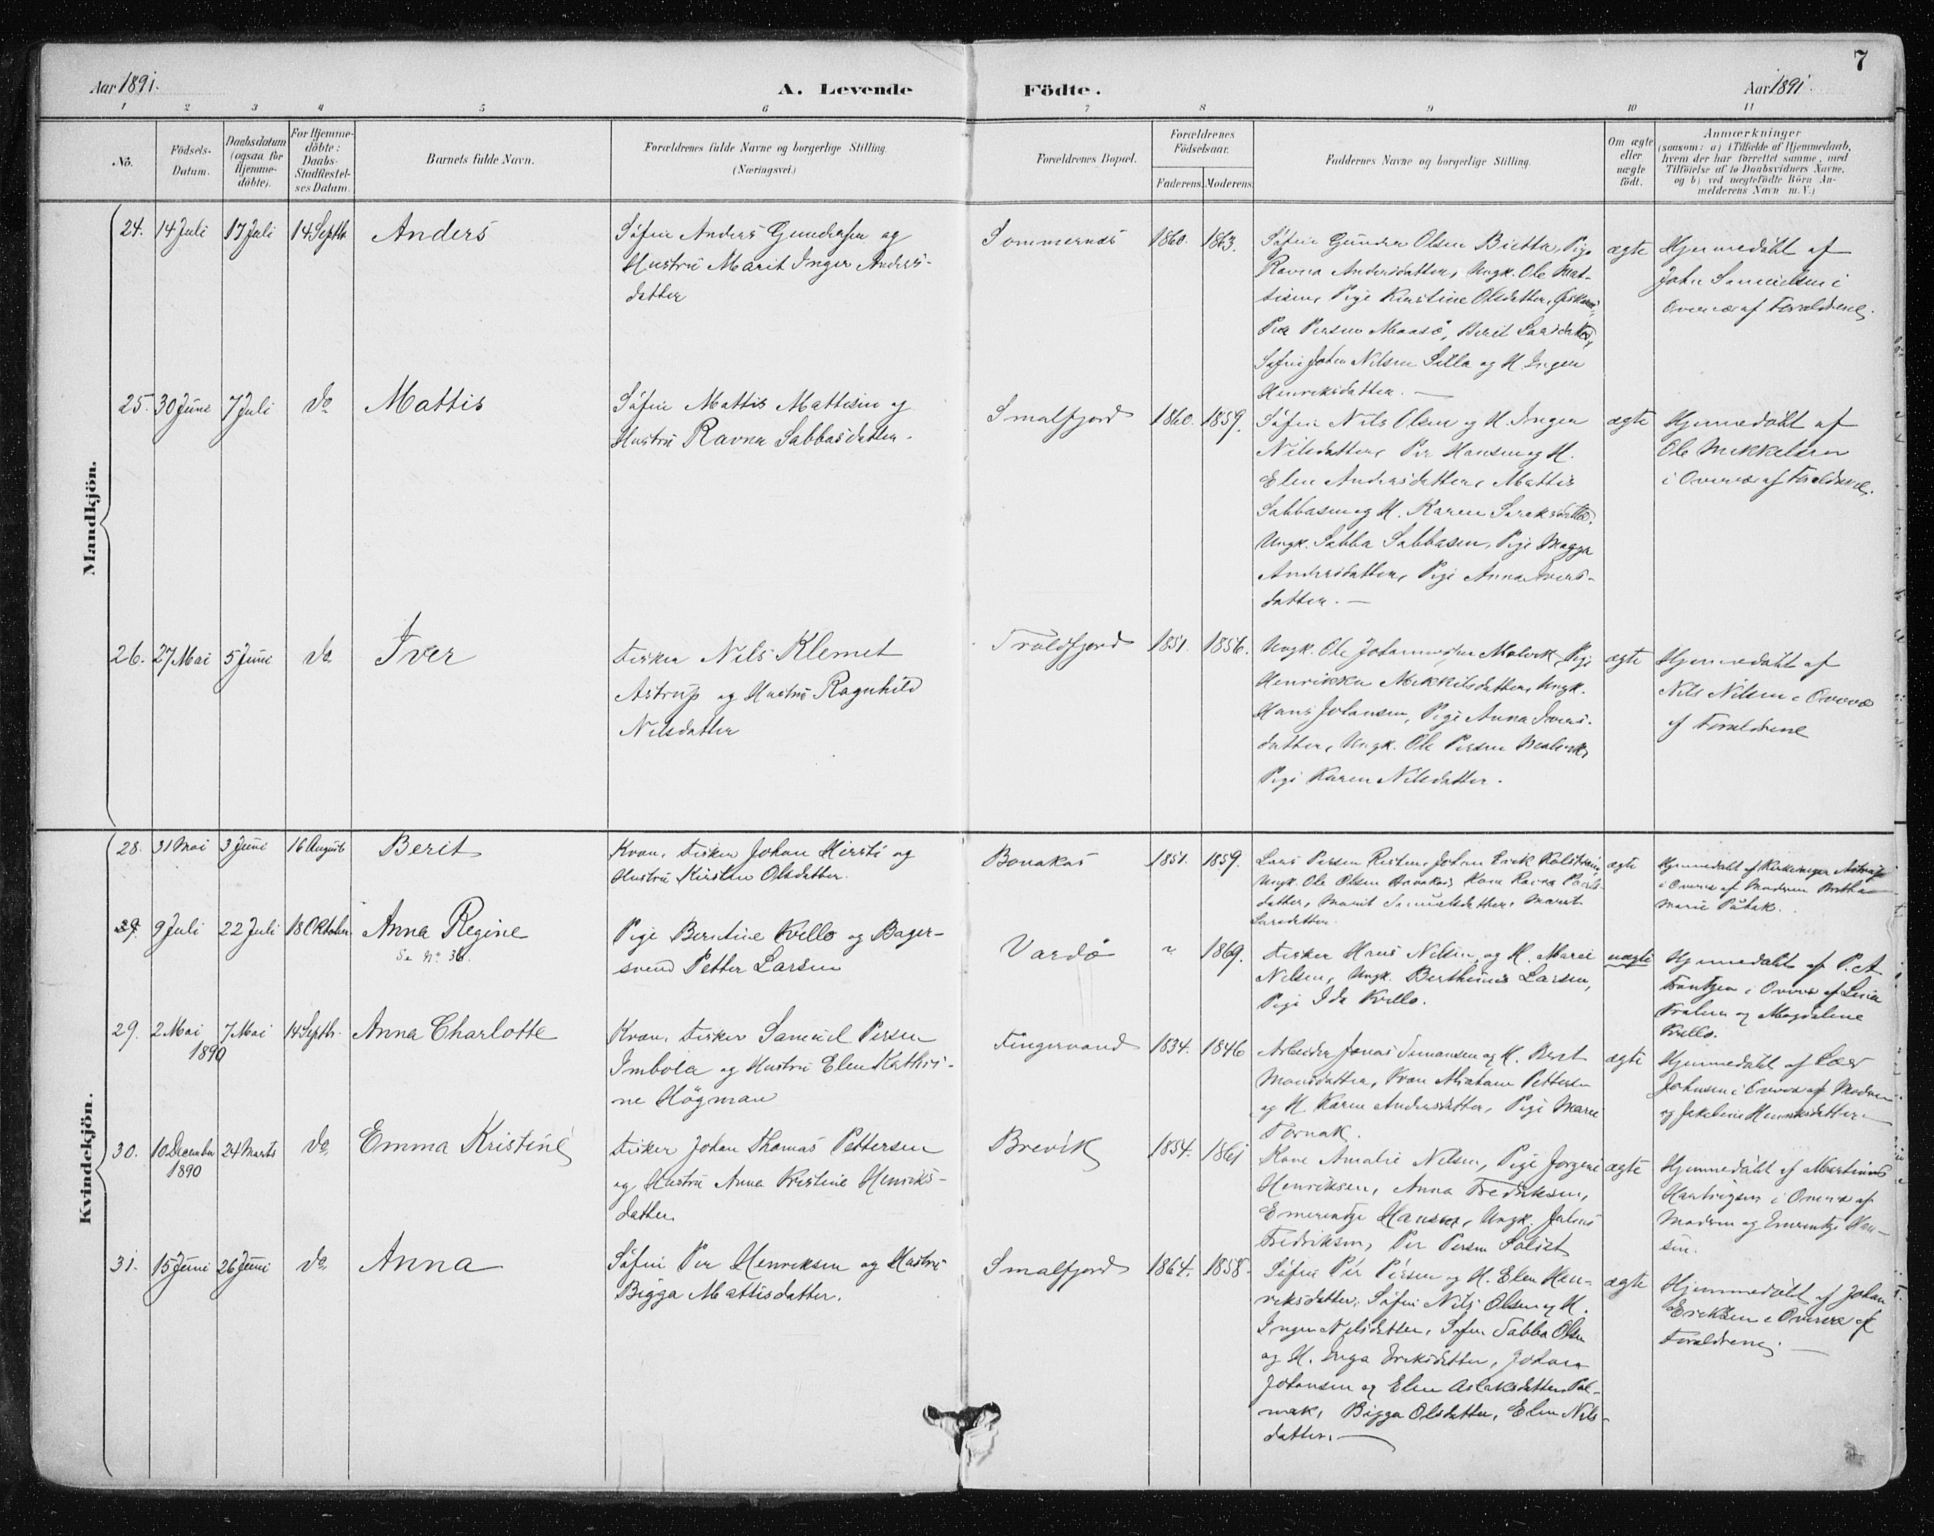 Aar 1891.
A. Levende
Födte.
Aar 1891.
7
1 2 3 4 5 6 7 8 9 10 11
No.
Födsels-
Datum.
Daabsdatum
(ogsaa for
Hjemme-
döbte).
For Hjemme-
döbte:
Daabs-
Stadfæstel-
ses Datum.
Barnets fulde Navn.
Forældrenes fulde Navne og borgerlige Stilling.
(Næringsvei.)
Forældrenes Bopæl.
Forældrenes
Födselsaar.
Faderens. Moderens.
Faddernes Navne og borgerlige Stilling.
Om ægte
eller
uægte
födt.
Anmærkninger
(saasom: a) i Tilfælde af Hjemmedaab,
hvem der har forrettet samme, med
Tilföielse af to Daabsvidners Navne,
og b) ved uægtefödte Börn An-
melderens Navn m. V.)
Mandkjön.
24. 14 Juli 17 Juli 14 Septbr
Anders
Söfin Anders Gundersen og
Hustru Marit Inger Anders-
datter
Sommernæs
1860. 1863.
Söfin Gunder Olsen Bietta, Pige
Ravna Andersdatter, Ungk. Ole Mat-
tisen, Pige Kirstine Olsdatter,
Per Persen Maasö, Berit Larsdatter,
Söfin Johan Nilsen Silla og H. Inger
Henriksdatter. —
ægte
Hjemmedöbt af
John Samuelsen i
Overvær af Forældrene.
25. 30 Juni 7 Juli do
Mattis
Söfin Mattis Mattisen og
Hustru Ravna Sabbasdatter.
Smalfjord
1860. 1859.
Söfin Nils Olsen og H. Inger
Nilsdatter, Per Hansen og H.
Elen Andersdatter, Mattis
Sabbasen og H. Karen
Ungk. Sabba Sabbasen, Pige Magga
Andersdatter, Pige Anna Ivers-
datter. —
ægte
Hjemmedöbt af
Ole Mikkelsen
i Overvær af Forældrene.
26. 27 Mai 5 Juni do
Iver
Fisker Nils Klemet
Astrup og Hustru Ragnhild
Nilsdatter
Troldfjord
1851. 1856.
Ungk. Ole Johannesen Malvik, Pige
Henrikka Mikkelsdatter, Ungk.
Hans Johansen, Pige Anna Ivers-
datter, Ungk. Ole Persen Malvik,
Pige Karen Nilsdatter.
ægte
Hjemmedöbt af
Nils Nilsen i Overvær
af Forældrene
Kvindekjön.
28. 31 Mai 3 Juni 16 August
Berit
Kvæn, Fisker Johan Hirsti og
Hustru Kirsten Olsdatter.
Bonakas
1851. 1859.
Lars Persen Risten, Johan Erik
Ungk. Ole Olsen Bonakas, Kone Ravna Pauls-
datter, Marit Samuelsdatter, Marit
Larsdatter
ægte
Hjemmedöbt af Kirkesanger Astrup
i Overvær af Madam Bertha
Marie
29. 9 Juli 22 Juli 18 Oktober
Anna Regine
Se No 36.
Pige Berntine Kvello og Bager-
svend Petter Larsen
Vardö
" 1869.
Fisker Hans Nilsen og H. Marie
Nilsen, Ungk. Berthinus Larsen,
Pige Ida Kvello.
uægte
Hjemmedöbt af P. A.
Frantzen i Overvær af
og Magdalene
Kvello.
29. 2 Mai 7 Mai 14 Septbr.
1890
Anna Charlotte
Kvæn, Fisker Samuel Persen
Imbola og Hustru Elen Kathri-
ne Högman
Fingervand
1834. 1846
Arbeider Jonas Simonsen og H. Berit
Monsdatter, Kvæn Abraham Pettersen
og H. Karen Andersdatter, Pige Marie
Tornak.
ægte
Hjemmedöbt af Lars
Johnsen i Overvær af Moderen
og Jakobine Henriksdatter
30. 10 December 24 Marts do
1890
Emma Kristine
Fisker Johan Thomas Pettersen
og Hustru Anna Kristine Henriks-
datter.
Brevik
1854. 1861
Kone Amalie Nilsen, Pige Jorgine
Henriksen, Anna Fredriksen,
Emerentze Hansen, Ungk. Julius
Fredriksen, Per Persen
ægte
Hjemmedöbt af Martinus
Hartvigsen i Overvær af
Madam og Emerentze Han-
sen.
31. 15 Juni 26 Juni do
Anna
Söfin Per Henriksen og Hustru
Bigga Mattisdatter.
Smalfjord
1864. 1858.
Söfin Per Persen og H. Elen Hen-
riksdatter, Söfin Nils Olsen og H.
Inger Nilsdatter, Söfin Sabba Olsen
og H. Inga Eriksdatter, Johan
Johansen og Elen Aslaksdatter Pol-
mak, Bigga Olsdatter, Elen Nils-
datter. —
ægte
Hjemmedöbt af Johan
Eriksen i Overvær af
Forældrene. —